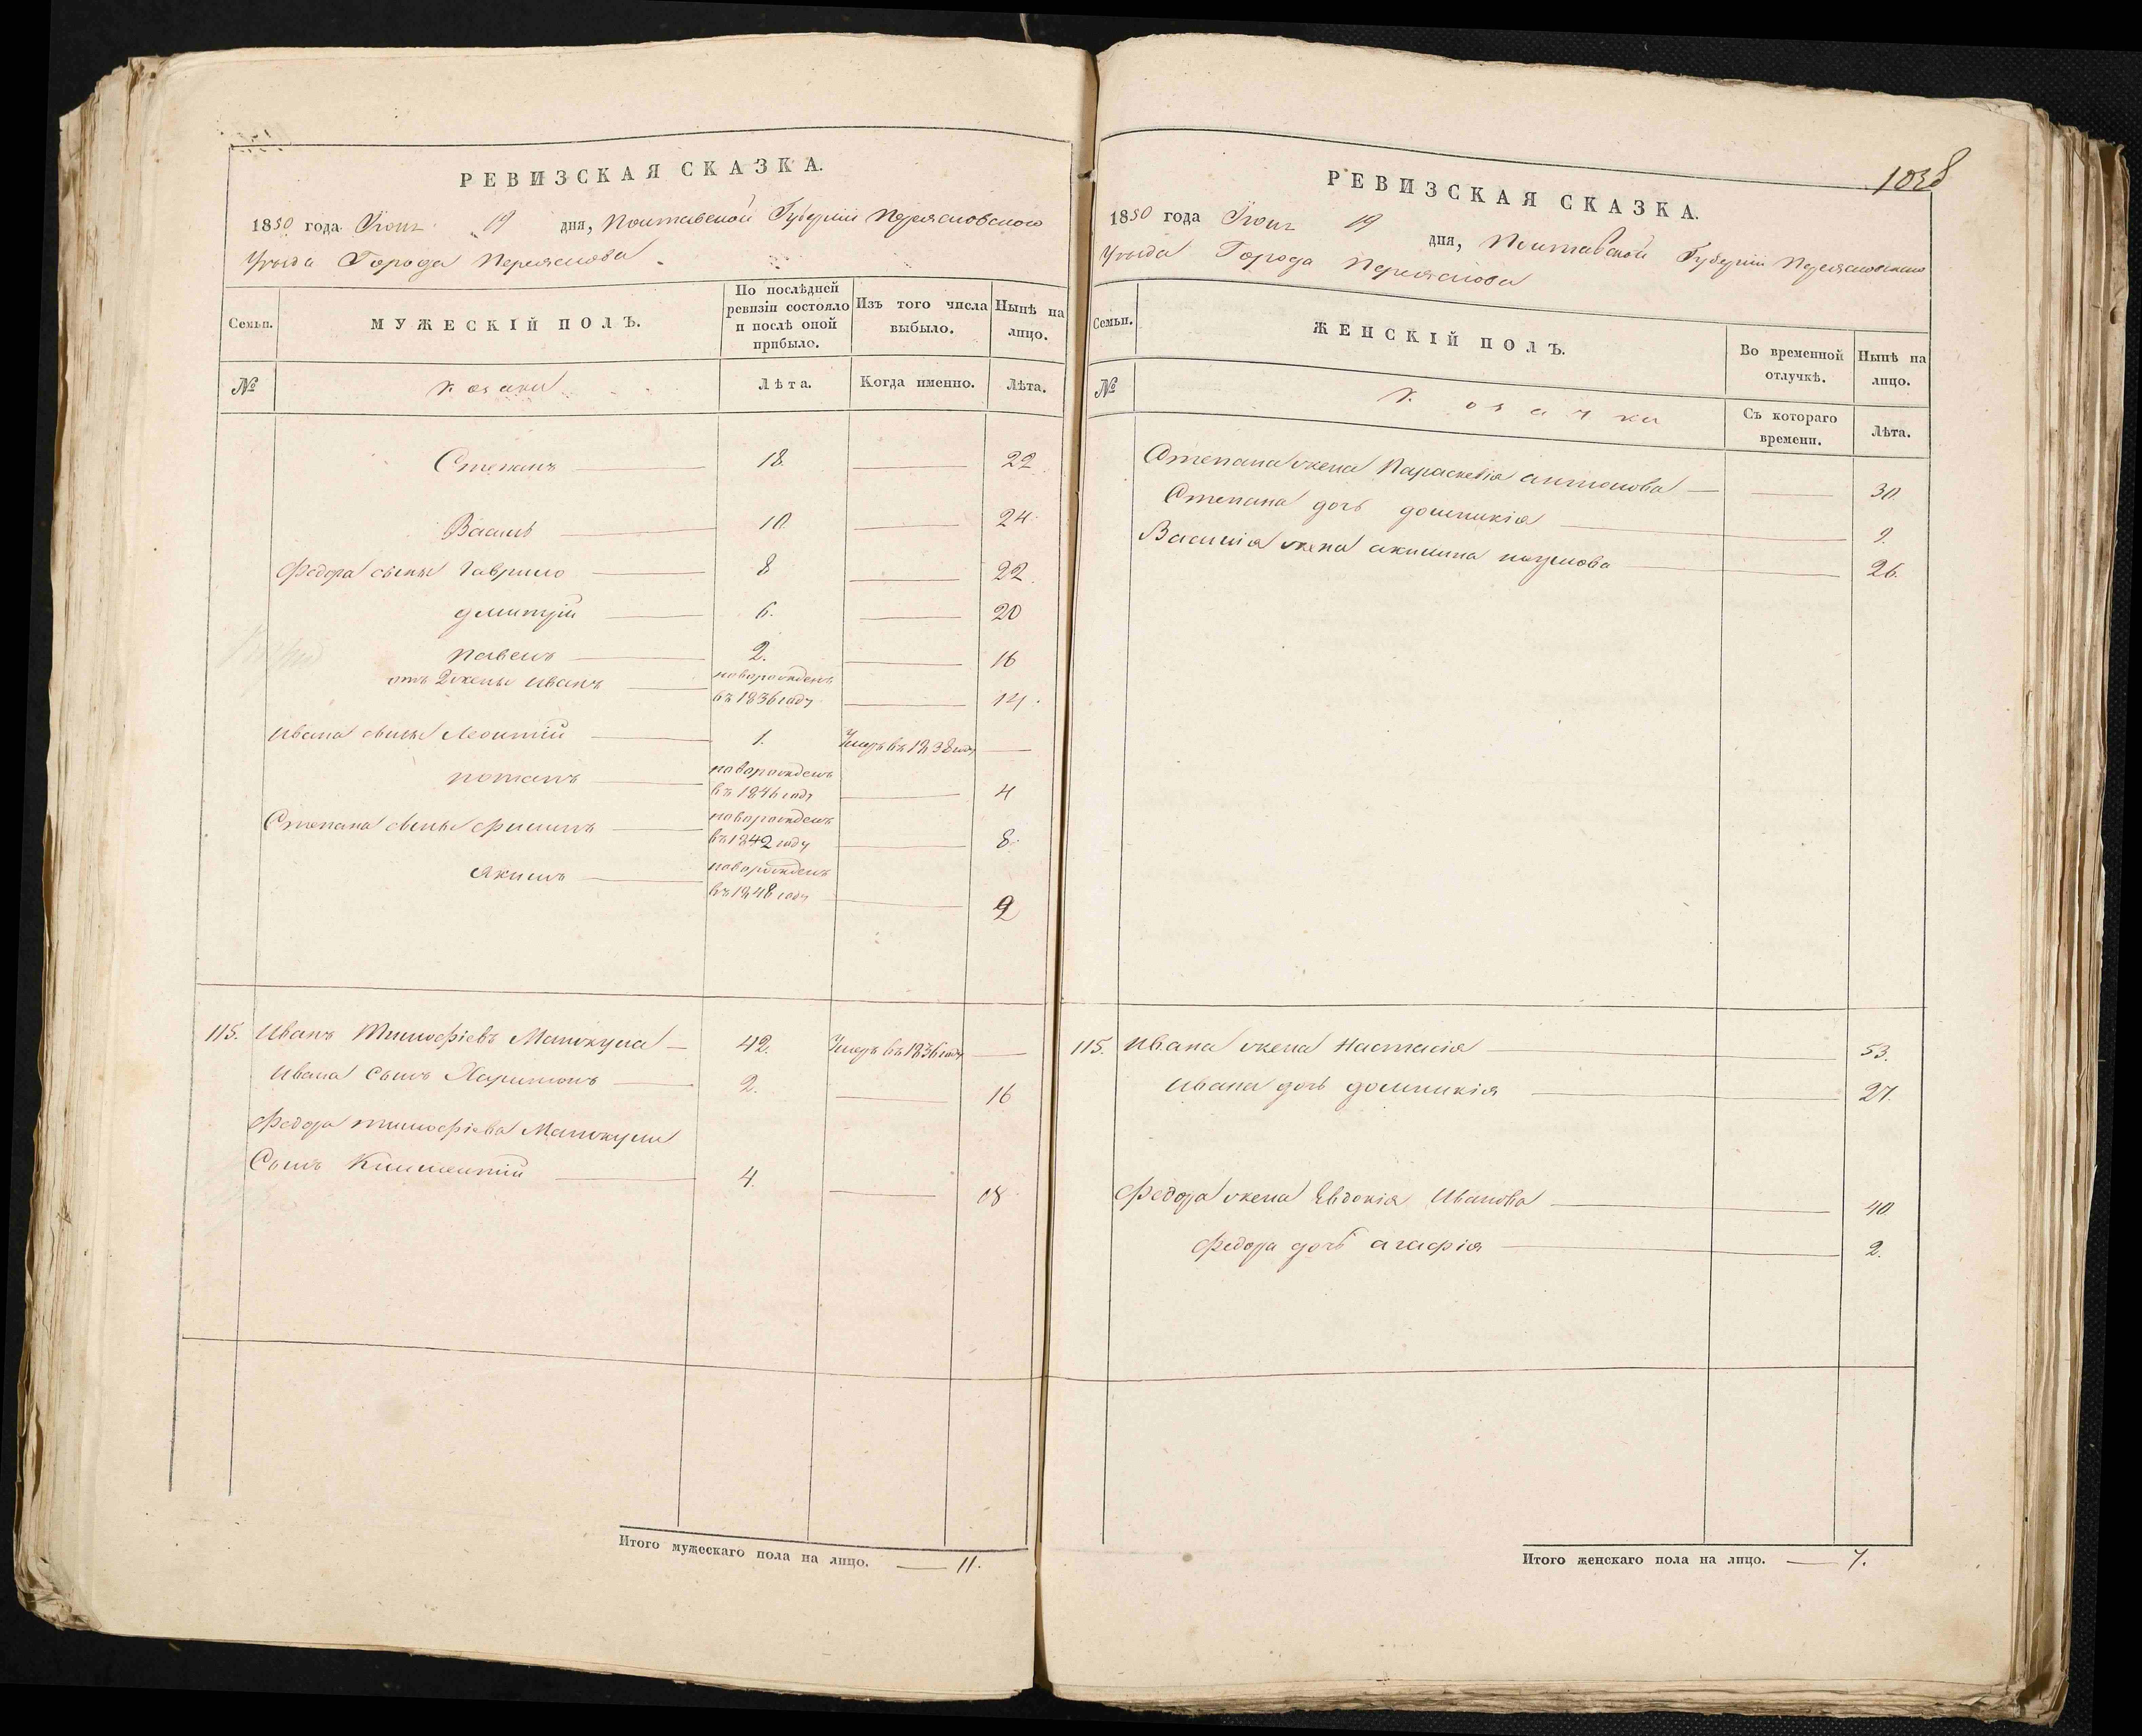 РЕВИЗСКАЯ СКАЗКА.
1850 года Іюня 19 дня, Полтавской Губерніи Переясловского
Уезда Города Переяслова
Семьи.
МУЖЕСКІЙ ПОЛЪ.
По послѣдней ревизіи состояло и послѣ оной прибыло.
Изъ того числа выбыло.
Нынѣ на лицо.
№ Козаки Лѣта. Когда именно. Лѣта.
Степанъ 18. 22
Василь 10. 24.
Федора сыны Гаврило 8 22.
дмитрій 6. 20
павелъ 2. 16
отъ 2 жены иванъ новорожденъ въ 1836 году 14.
Ивана сыны Леонтій 1. Умеръ въ 1838 году
потапъ новорожденъ въ 1846 году 4
Степана сыны филипъ новорожденъ въ 1842 году 8.
Якимъ новорожденъ въ 1848 году 2
115. Иванъ Тимофіевъ 42. Умеръ въ 1836 году
Ивана Сынъ Харитонъ 2. 16
Федора тимофіева
Сынъ Климентій 4. 18
Итого мужескаго пола на лицо. 11.
1038
РЕВИЗСКАЯ СКАЗКА.
1850 года Іюня 19 дня, Полтавской Губерніи Переясловского
Уезда Города Переяслова
Семьи.
ЖЕНСКІЙ ПОЛЪ.
Во временной отлучкѣ.
Нынѣ на лицо.
№ Козачки Съ котораго времени. Лѣта.
Степана жена Параскевія антонова 30.
Степана дочь домникія 9.
Василія жена акилина наумова 26.
115. Ивана жена Настасія 53.
Ивана дочь домникія 27.
Федора жена Евдокія Иванова 40.
Федора дочь агафія 2.
Итого женскаго пола на лицо. 7.